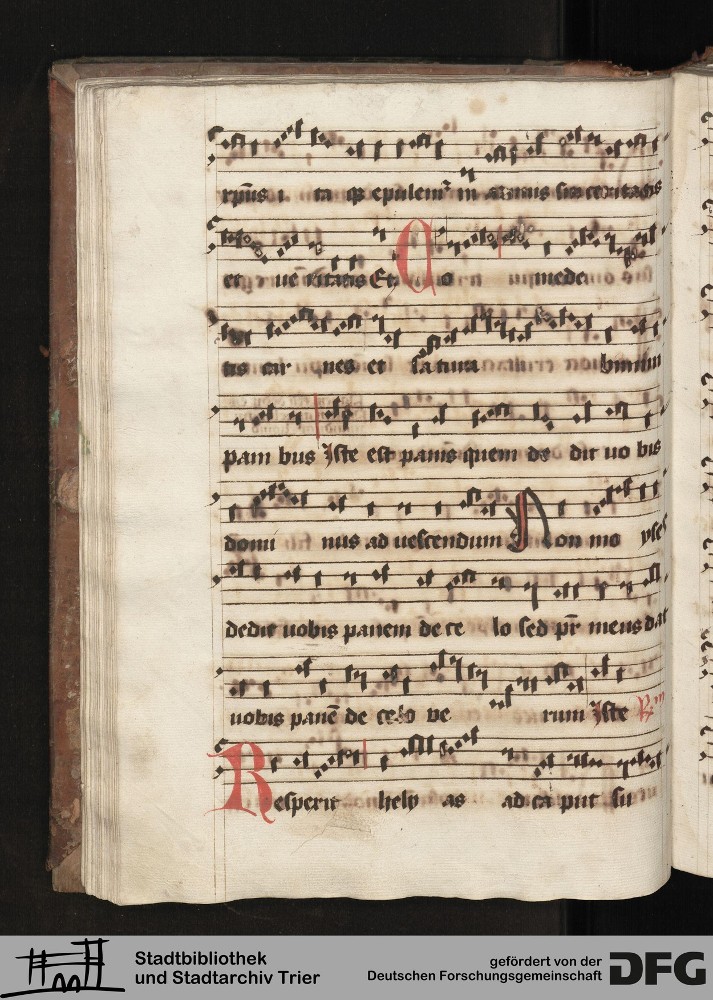 rpus i ta qz epulem' in azimis sinceritatis
et ue ritatis Et Co mede
tis car nes et satura bimini
pani bus Iste est panis quem de dit uo bis
domi nus ad uescendum Non mo yses
dedit uobis panem de ce lo sed pr̄ meus dat
uobis panē de celo ve rum Iste R'm
Resperit hely as ad ca put su
Stadtbibliothek
und Stadtarchiv Trier
gefördert von der
Deutschen Forschungsgemeinschaft
DFG